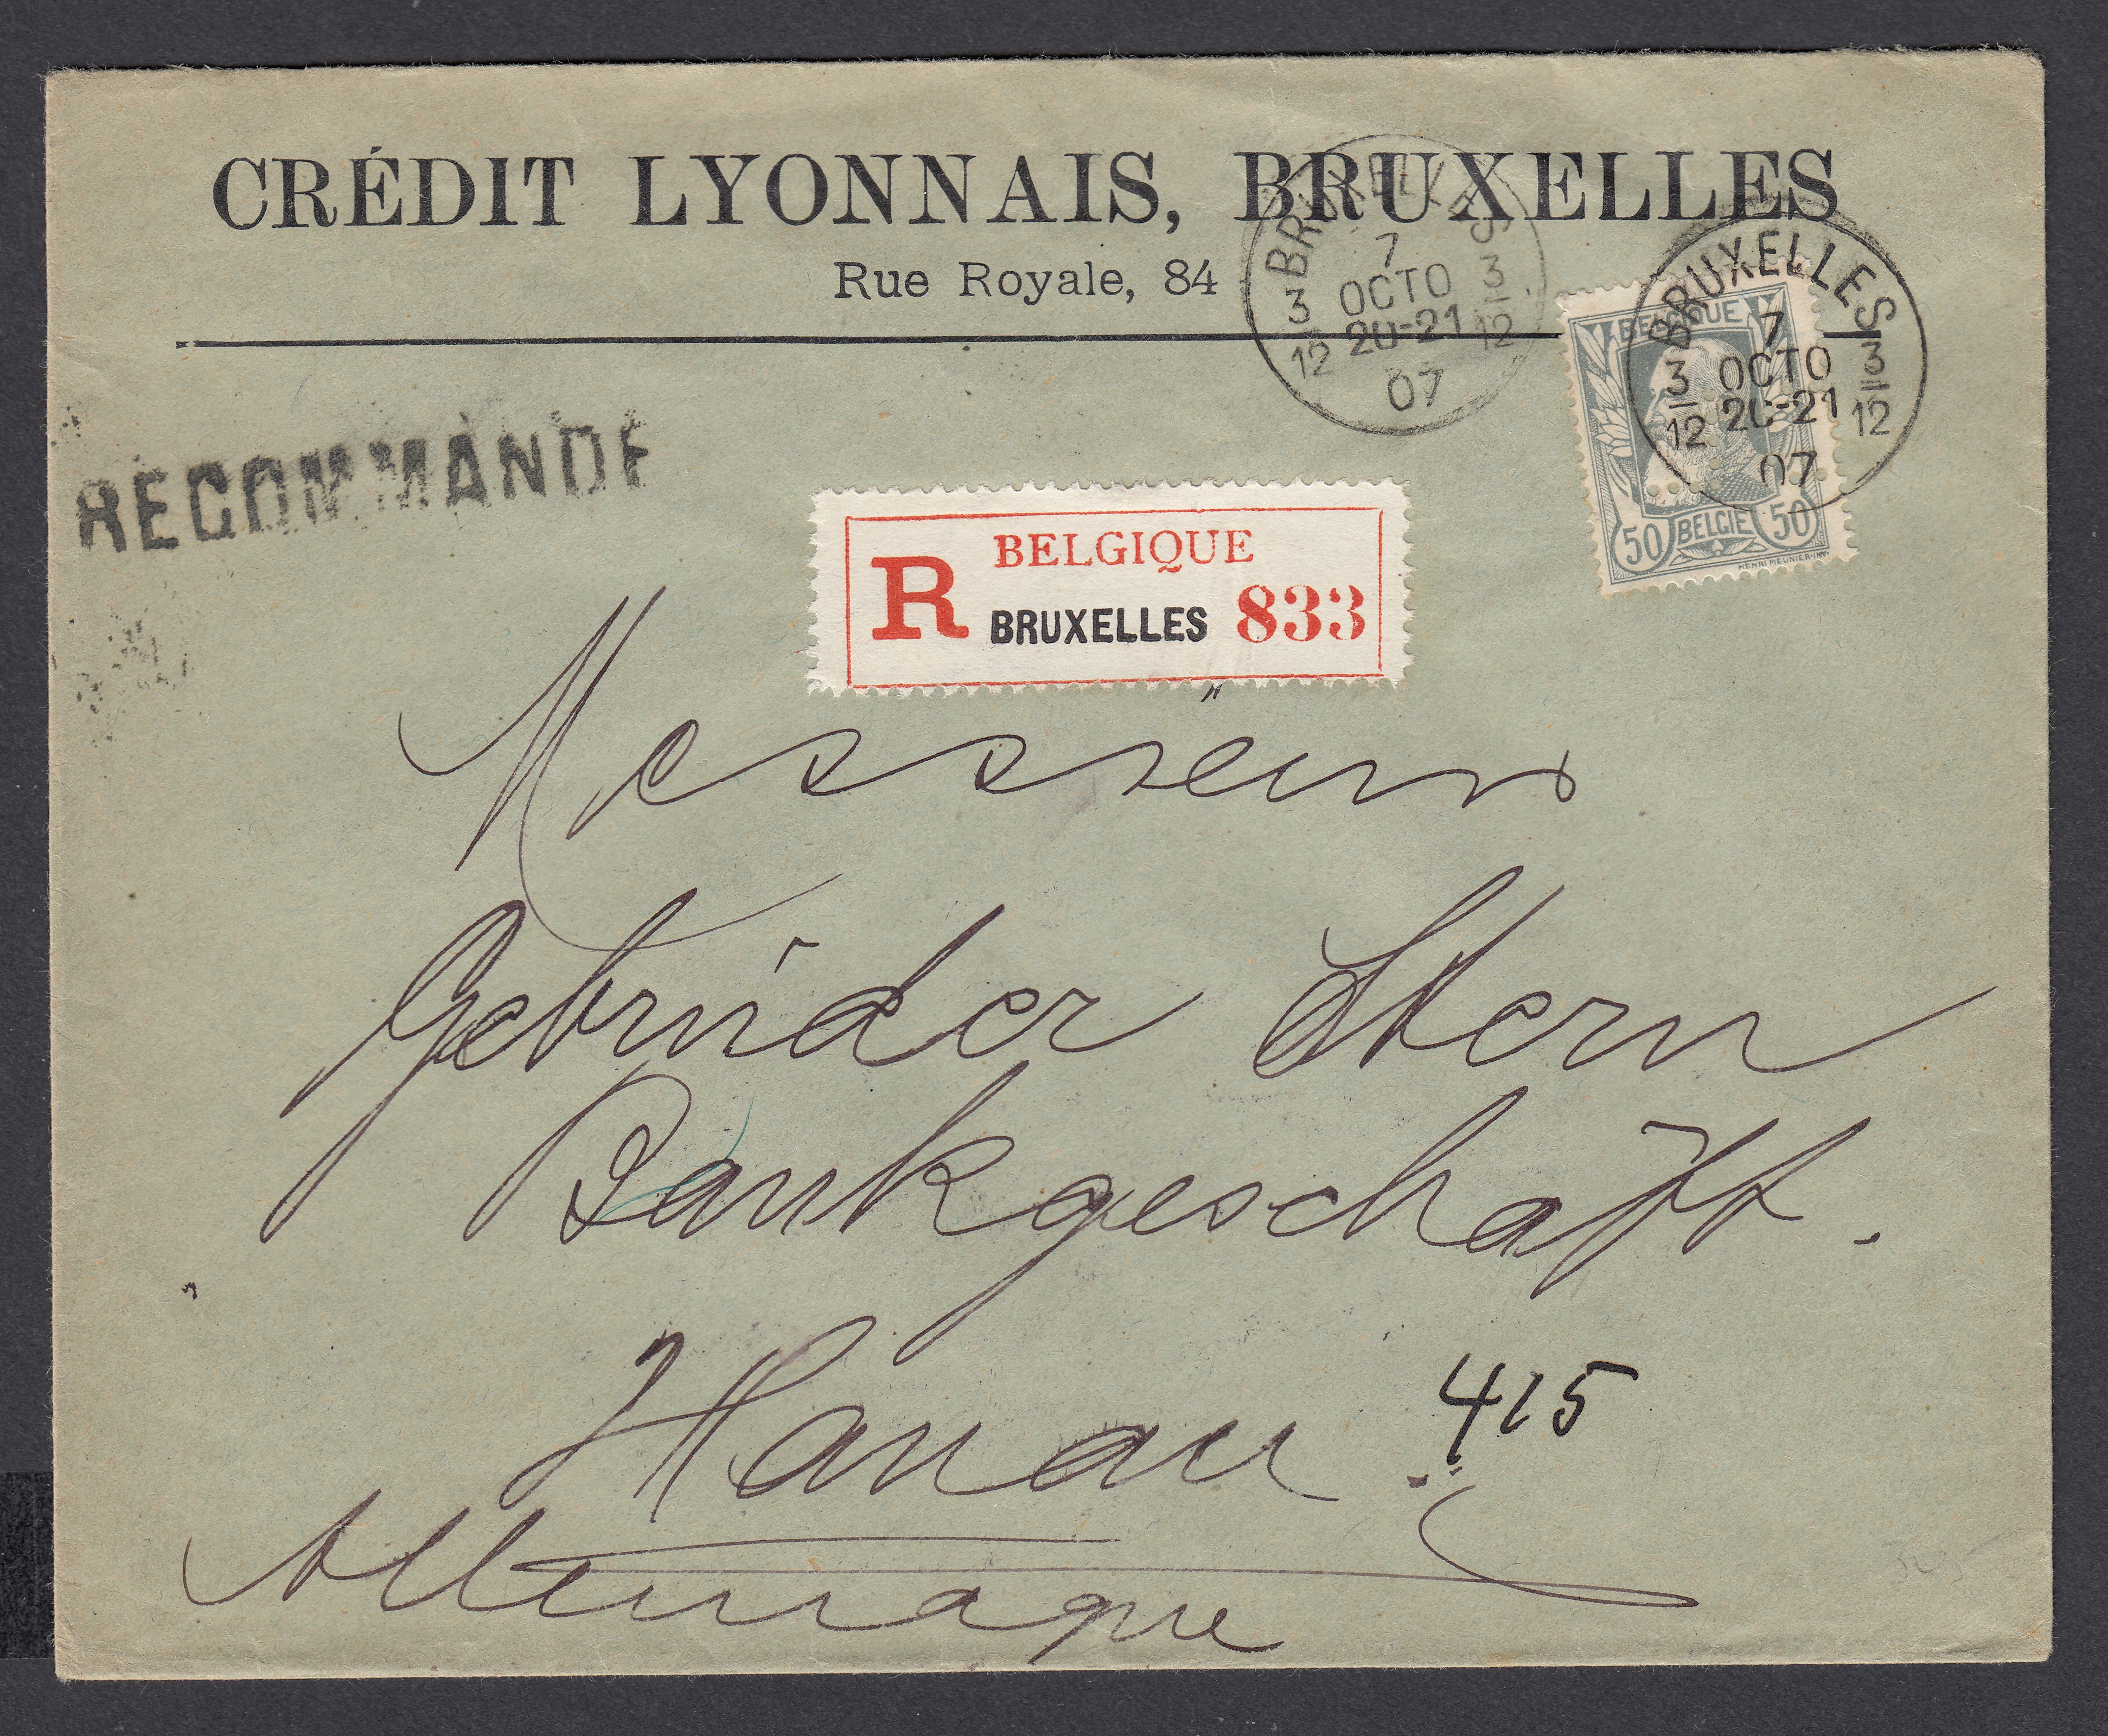 CRÉDIT LYONNAIS, BRUXELLES
Rue Royale, 84
BRUXELLES
7
3 OCTO 3
12 20-21 12
07
BRUXELLES
7
3 OCTO 3
12 20-21 12
07
BELGIQUE
50 BELGIË 50
HENRI MEUNIER-INV.
RECOMMANDE
BELGIQUE
R BRUXELLES 833
Messieurs
Gebrüder Stern
Bankgeschäft.
Hanau
415
Allemagne